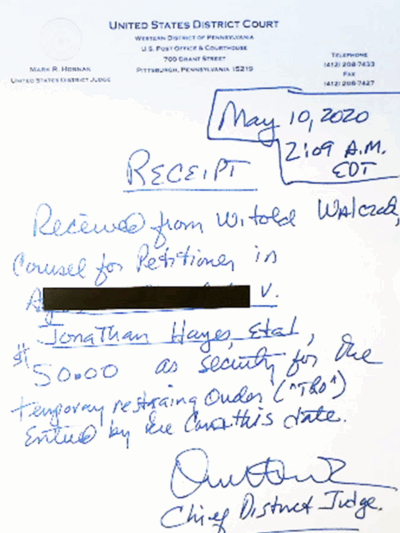 UNITED STATES DISTRICT COURT
WESTERN DISTRICT OF PENNSYLVANIA
U.S. POST OFFICE & COURTHOUSE
700 GRANT STREET
PITTSBURGH, PENNSYLVANIA 15219
MARK R. HORNAK
UNITED STATES DISTRICT JUDGE
TELEPHONE
(412) 208-7433
FAX
(412) 208-7427
May 10, 2020
2:09 A.M.
EDT
RECEIPT
Received from Witold Walczak,
Counsel for Petitioner in
v.
Jonathan Hayes, et al,
$50.00 as security for the
temporary restraining Order ("TRO")
Entered by the Court this date.
Chief District Judge.